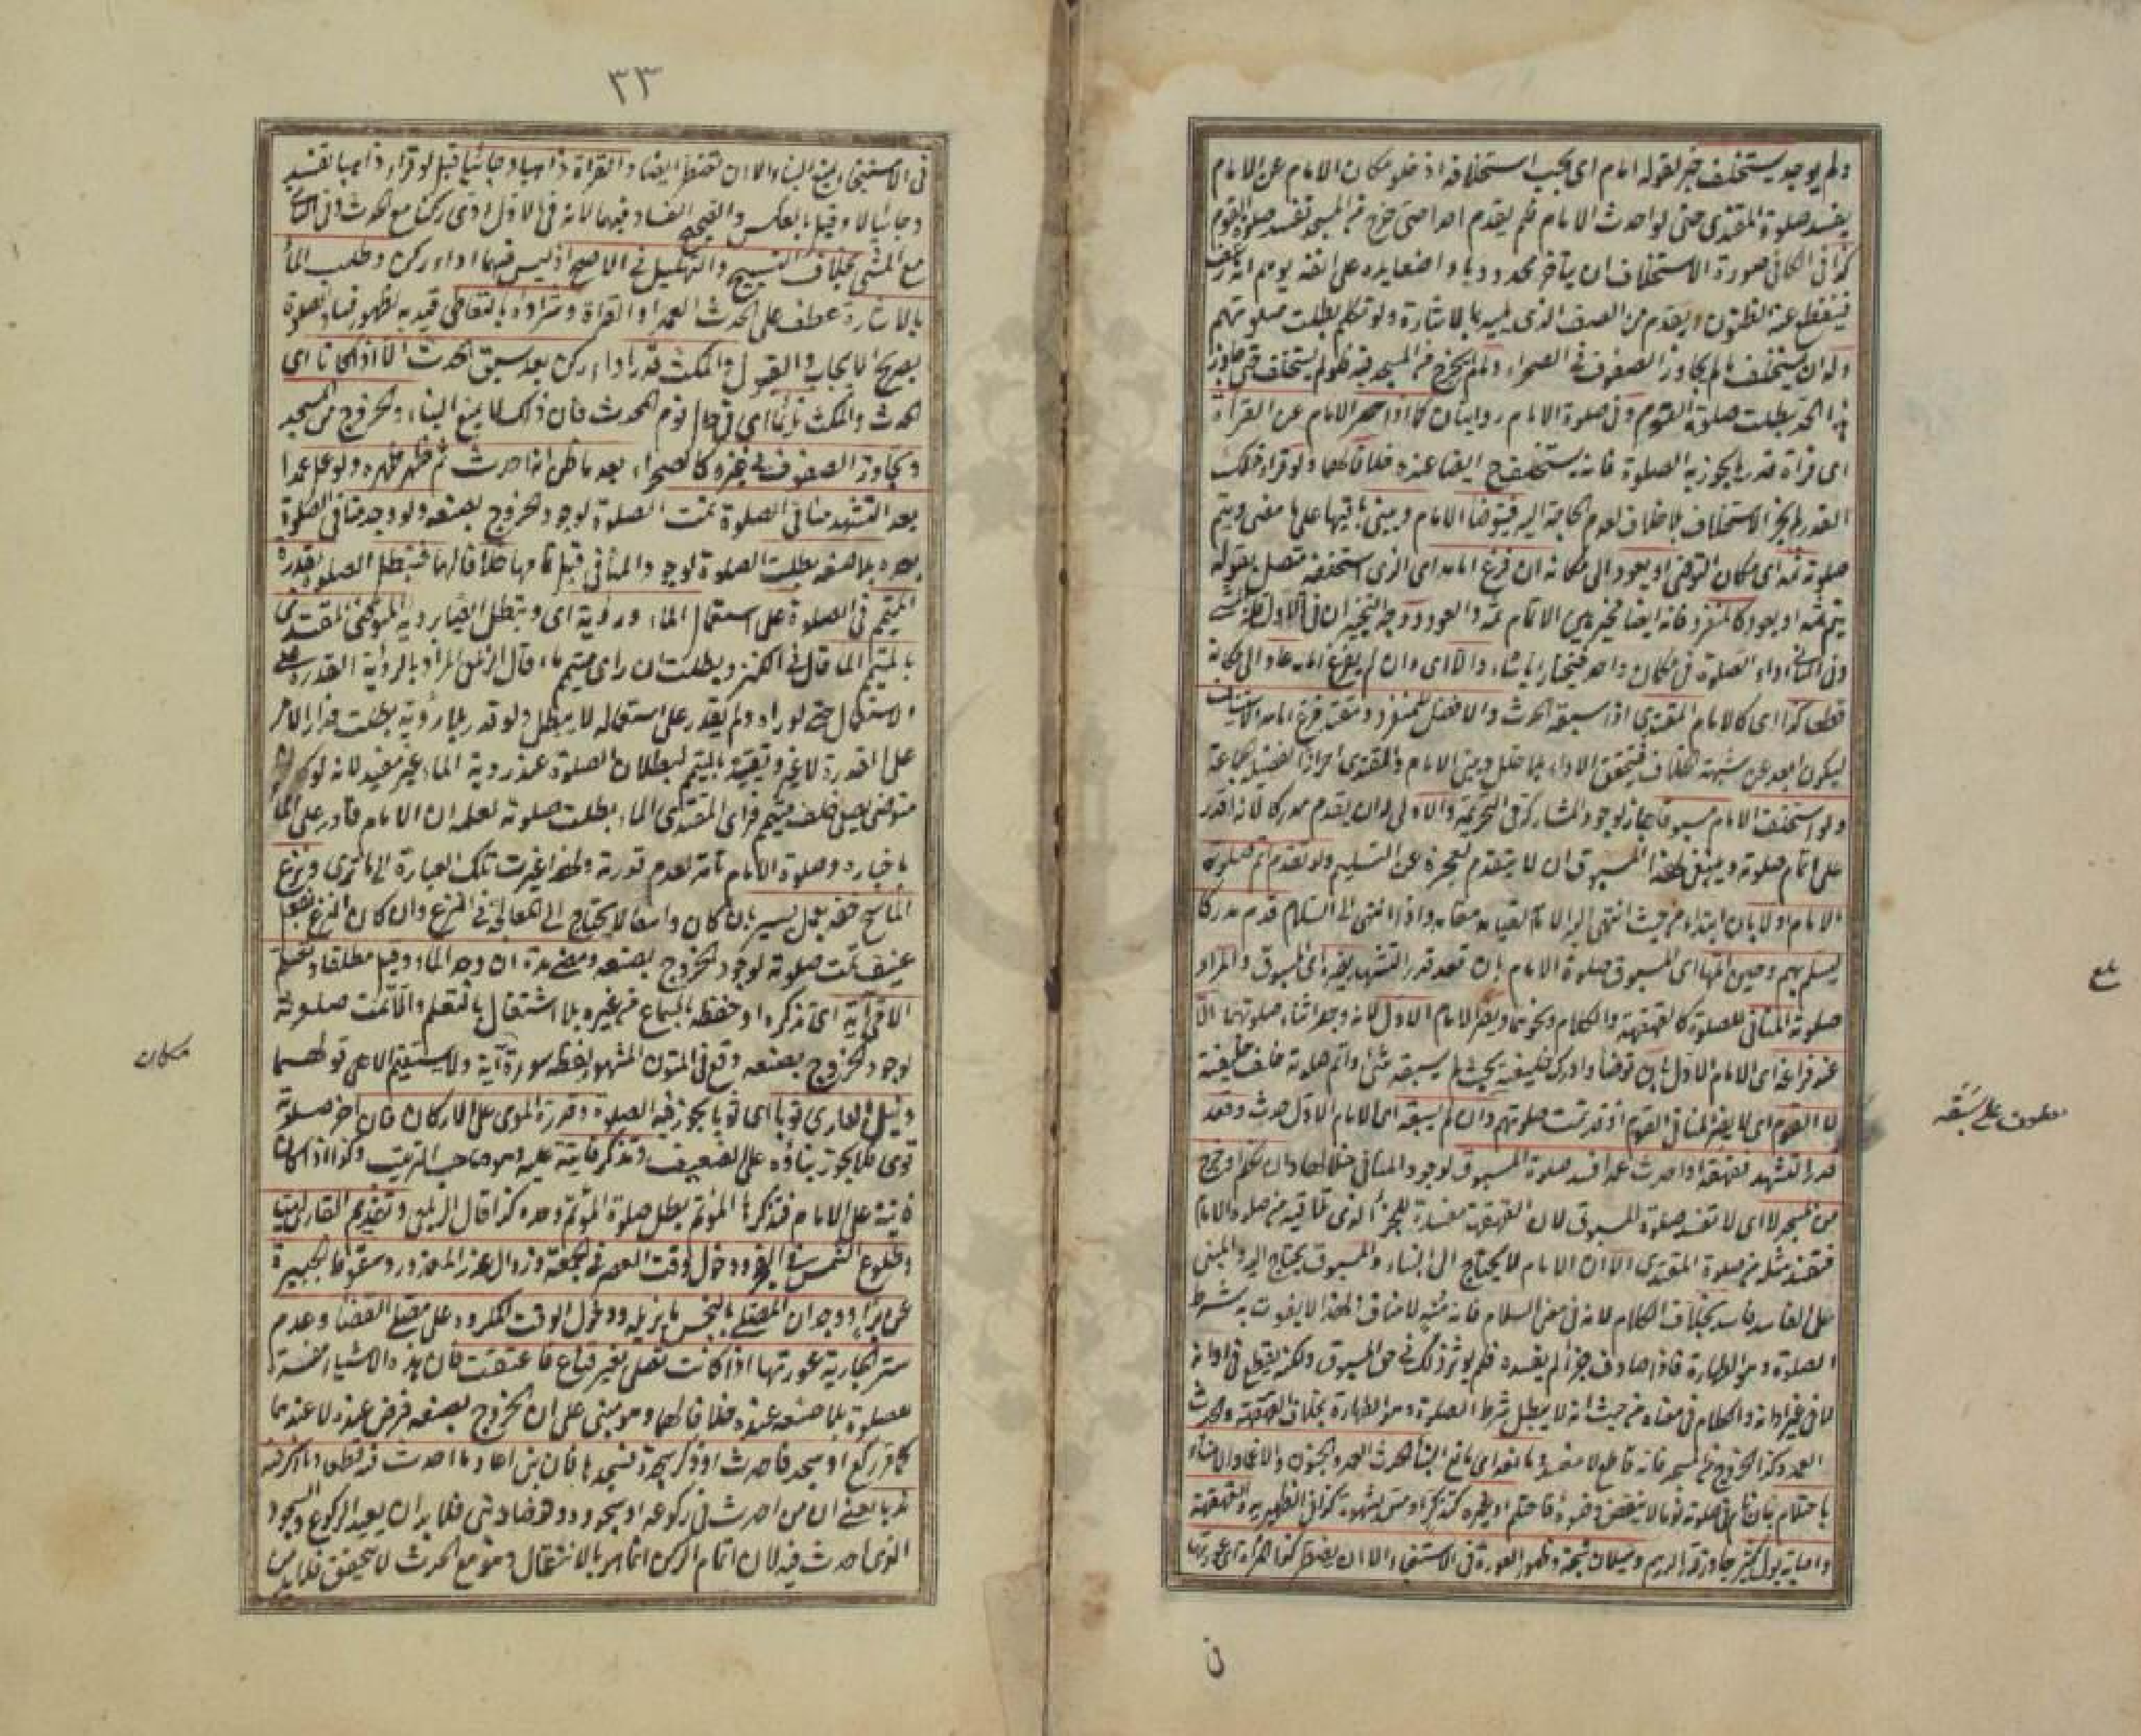 ولم يوجد يستخلف خبر لقوله امام اى يجب استخلافه اذ خلو مكان الامام عن الامام
يفسد صلوة المقتدى حتى لو احدث الامام فلم يقدم احدا حتى خرج من المسجد تفسد صلوة القوم
كذا فى الكافى صورة الاستخلاف ان يتأخر محدودبا واضعا يده على انفه يوهم انه رعف
فينقطع عنه الظنون ويقدم من الصف الذى يليه بالاشارة ولو تكلم بطلت صلوتهم
وله ان يستخلف ما لم يجاوز الصفوف فى الصحراء وما لم يخرج من المسجد فيه فلو لم يستخلف حتى جاوز
هذا الحد بطلت صلوة القوم وفى صلوة الامام روايتان كما اذا حصر الامام عن القراءة
اى قراءة قدر ما يجوز به الصلوة فانه يستخلف ح ايضا عنده خلافا لهما ولو قراء ذلك
القدر لم يجز الاستخلاف بلا خلاف لعدم الحاجة اليه فيتوضأ الامام ويبنى باقيها على ما مضى ويتم
صلوته ثمه اى مكان التوضى او يعود الى مكانه ان فرغ امامه اى الذى استخلفه متصل بقوله
يتم ثمه او يعود كالمنفرد فانه ايضا مخير بين الاتمام ثمه والعود ووجه التخيير ان فى الاول قلة المشى
وفى الثانى اداء الصلوة فى مكان واحد فيختار ايا شاء والا اى وان لم يفرغ امامه عاد الى مكانه
قطعا كذا اى كالامام المقتدى اذا سبقه الحدث والافضل للمنفرد ومقتد فرغ امامه الاستيناف
ليكون ابعد عن شبهة الخلاف فيتحقق الاداء بلا خلل ويبنى الامام والمقتدى احرازا لفضيلة الجماعة
ولو استخلف الامام مسبوقا جاز لوجود المشاركة فى التحريمة والاولى له ان يقدم مدركا لانه اقدر
على اتمام صلوته وينبغى لهذا المسبوق ان لا يتقدم لعجزه عن التسليم ولو تقدم اتم صلوة
الامام اولا بان ابتداء من حيث انتهى اليه الامام لقيامه مقامه واذا انتهى الى السلام قدم مدركا
يسلم بهم وحين اتمها اى المسبوق صلوة الامام بان قعد قدر التشهد يضره اى المسبوق والمراد
صلوته المنافى للصلوة كالقهقهة والكلام ونحوهما ويضر الامام الاول لانه وجد اثناء صلوتهما الا
عند فراغه اى الامام الاول بان توضأ وادرك خليفته بحيث لم يسبقه شئ واتم صلوته خلف خليفته
لا القوم اى لا يضر المنافى القوم اذ قد تمت صلوتهم وان لم يسبقه اى الامام الاول حدث وقعد
قدر التشهد فقهقه او احدث عمدا فسد صلوة المسبوق لوجود المنافى خلالها وان تكلم او خرج
من المسجد لا اى لا تفسد صلوة المسبوق لان القهقهة مفسدة للجزء الذى تلاقيه من صلوة الامام
فتفسد مثله من صلوة المقتدى الا ان الامام لا يحتاج الى البناء والمسبوق يحتاج اليه والمبنى
على الفاسد فاسد بخلاف الكلام لانه فى معنى السلام فانه منه لا مناف ولهذا لا يفوت به شرط
الصلوة وهو الطهارة فاذا صادف جزأ لم يفسده فلم يؤثر ذلك فى حق المسبوق ولكنه يقطع فى اوانه
لا فى غير اوانه والكلام فى معناه من حيث انه لا يبطل شرط الصلوة وهو الطهارة بخلاف القهقهة والحدث
العمد وكذا الخروج من المسجد فانه قاطع لا مفسد وما نعه اى مانع البناء الحدث العمد والجنون والاغماء والامناء
باحتلام بان نام فى صلوته نوما لا ينقض وضوءه فاحتلم او بغيره كتفكر او مس بشهوة كذا فى الظهيرية والقهقهة
واصابة بول كثير جاوز قدر الدرهم وسيلان شجة وظهور العورة فى الاستنجاء الا ان يضطر كذا المرأة اى عورتها
ن
بلغ
معطوف على سبقه
٣٣
فى الاستنجاء يمنع البناء الا ان تضطر ايضا والقراءة ذاهبا وجائيا قيل لو قراء ذاهبا تفسد
وجائيا لا وقيل بالعكس والصحيح الفساد فيهما لانه فى الاول ادى ركنا مع الحدث وفى الثانى
مع المشى بخلاف التسبيح والتهليل فى الاصح اذ ليس فيهما اداء ركن وطلب الماء
بالاشارة عطف على الحدث العمد او القراءة وشراؤه بالتعاطى قيد به لظهور فساد الصلوة
بصريح الايجاب والقبول والمكث قدر اداء ركن بعد سبق الحدث الا اذا كانا اى
الحدث والمكث نائما اى فى حال نوم المحدث فان ذلك لا يمنع البناء والخروج من المسجد
وتجاوز الصفوف فى غيره كالصحراء بعد ما ظن انه احدث ثم ظهر طهره ولو عمل عمدا
بعد التشهد منافى الصلوة تمت الصلوة لوجود الخروج بصنعه ولو وجد منافى الصلوة
بعده بلا صنعه بطلت الصلوة لوجود المنافى قبل تمامها خلافا لهما فتبطل الصلوة بقدرة
المتيمم فى الصلوة على استعمال الماء ورؤية اى وتبطل ايضا برؤية المتوضئ المقتدى
بالمتيمم الماء قال فى الكنز وبطلت ان رأى متيمم ماء قال الزيلعى المراد بالرؤية القدرة على
الاستعمال حتى لو رآه ولم يقدر على استعماله لا يبطل ولو قدر بلا رؤية بطلت فدار الامر
على القدرة لا غير وتقييده بالمتيمم لبطلان الصلوة عند رؤية الماء غير مفيد لانه لو كان
متوضئ يصلى خلف متيمم فرأى المقتدى الماء بطلت صلوته لعلمه ان الامام قادر على الماء
باخباره وصلوة الامام تامة لعدم قدرته ولهذا غيرت تلك العبارة الى ما ترى ونزع
الماسح خفه بعمل يسير بان كان واسعا لا يحتاج الى المعالجة فى النزع وان كان النزع بفعل
عنيف تمت صلوته لوجود الخروج بصنعه ومضى مدته ان وجد الماء وقيل مطلقا وتعلم
الامى آية اى تذكره او حفظه بالسماع من غيره بلا اشتغال بالتعلم والا تمت صلوته
لوجود الخروج بصنعه وقع فى المتون المشهورة لفظة سورة آية ولا يستقيم الا على قولهما
ونيل العارى ثوبا اى ثوبا يجوز فيه الصلوة وقدرة المومى على الاركان فان آخر صلوته
قوى فلا يجوز بناؤه على الضعيف وتذكر فائتة عليه وهو صاحب الترتيب وكذا اذا كان
فائتة على الامام فتذكرها المؤتم بطل صلوة المؤتم وحده كذا قال الزيلعى وتقديم القارئ اميا
وطلوع الشمس فى الفجر ودخول وقت العصر فى الجمعة وزوال عذر المعذور وسقوط الجبيرة
عن برء ووجدان المصلى بالنجس ما يزيله ودخول الوقت المكروه على مصلى القضاء وعدم
ستر الجارية عورتها اذا كانت تصلى بغير قناع فاعتقت فان هذه الاشياء مفسدة
للصلوة بلا صنعه عنده خلافا لهما وهو مبنى على ان الخروج بصنعه فرض عنده لا عندهما
كما قرر ركع او سجد فاحدث او ذكر سجدة فسجدها فان بنى اعاد ما احدث فيه قطعا وما ذكر فيه
ندبا يعنى ان من احدث فى ركوعه او سجوده وتوضأ وبنى فلا بد ان يعيد الركوع والسجود
الذى احدث فيه لان اتمام الركن انما هو بالانتقال وهو مع الحدث لا يتحقق فلا بد من
مكان